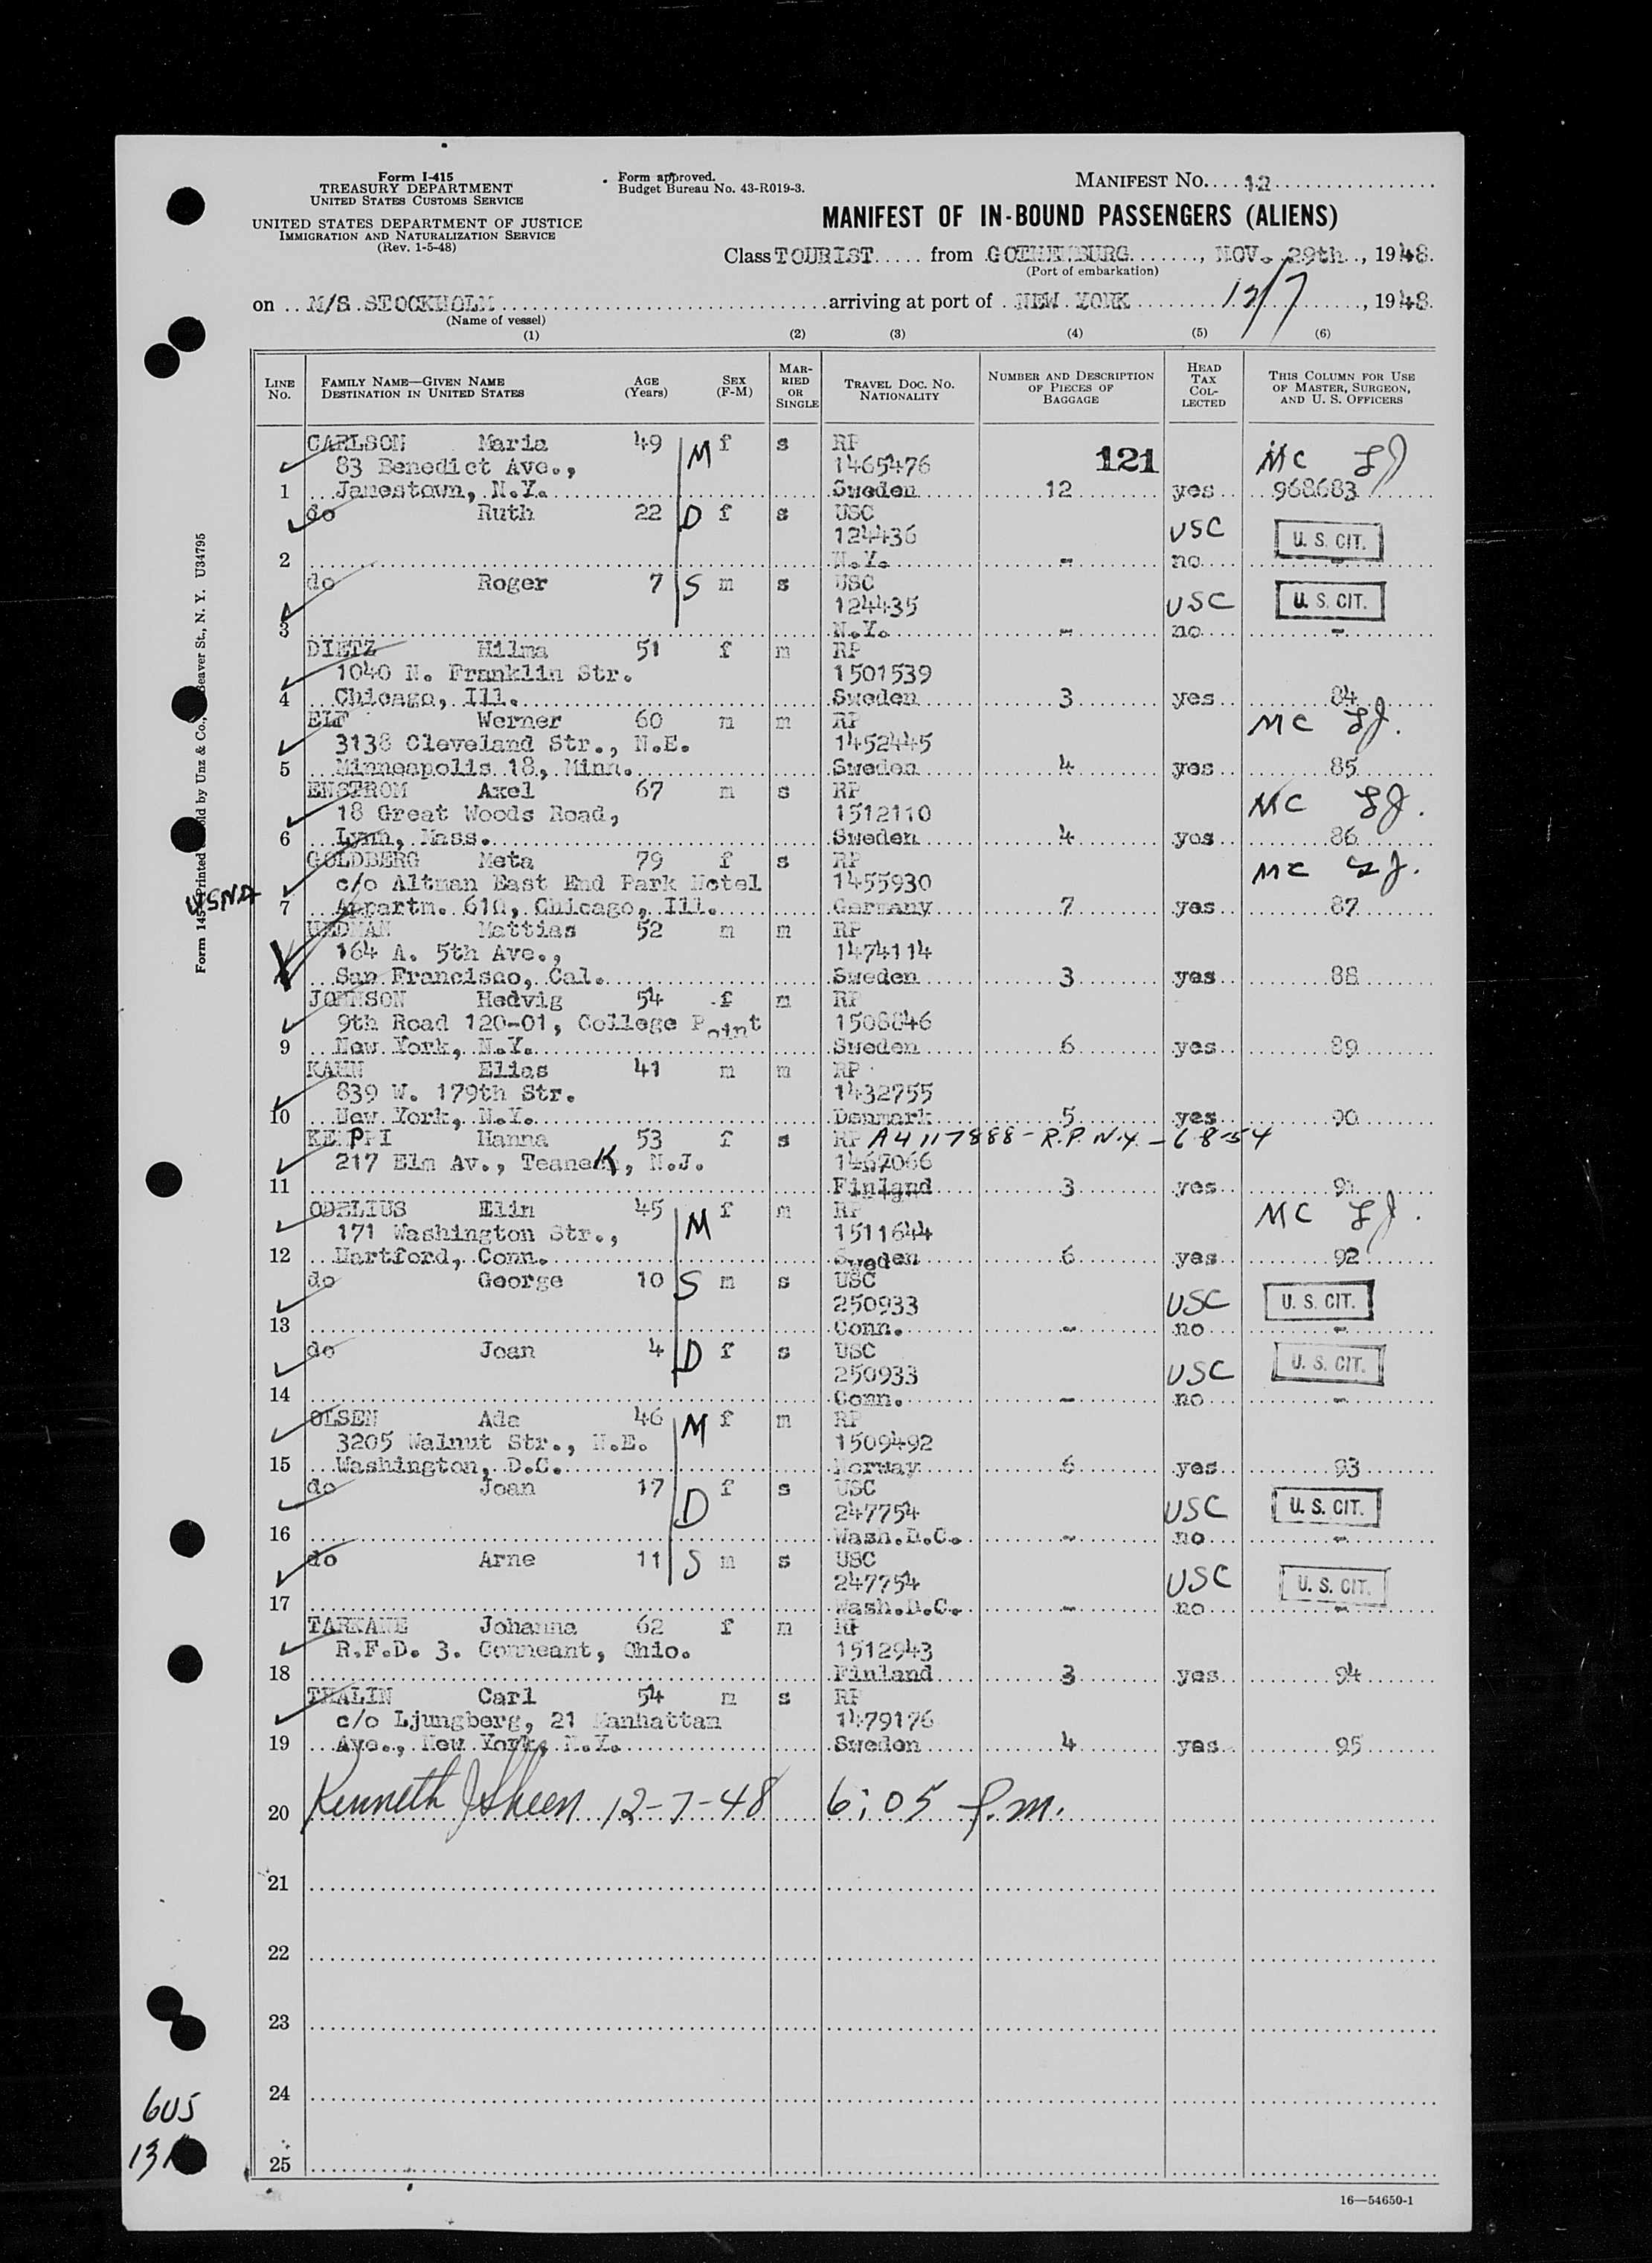 Form I-415
TREASURY DEPARTMENT
UNITED STATES CUSTOMS SERVICE
UNITED STATES DEPARTMENT OF JUSTICE
IMMIGRATION AND NATURALIZATION SERVICE
(Rev. 1-5-48)
Form approved.
Budget Bureau No. 43-R019-3.
MANIFEST NO. 12
MANIFEST OF IN-BOUND PASSENGERS (ALIENS)
Class TOURIST from GOTHENBURG, NOV. 29th, 1948.
(Port of embarkation)
on M/S STOCKHOLM arriving at port of NEW YORK 12/7, 1948.
(Name of vessel)
(1) (2) (3) (4) (5) (6)
LINE NO. FAMILY NAME—GIVEN NAME DESTINATION IN UNITED STATES AGE (Years) SEX (F-M) MARRIED OR SINGLE TRAVEL DOC. NO. NATIONALITY NUMBER AND DESCRIPTION OF PIECES OF BAGGAGE HEAD TAX COLLECTED THIS COLUMN FOR USE OF MASTER, SURGEON, AND U. S. OFFICERS
CARLSON Maria 49 M f s RP 121 MC LJ
83 Benedict Ave., 1465476
1 Jamestown, N.Y. Sweden 12 yes 968683
do Ruth 22 D f s USC
124436 USC U. S. CIT.
2 N.Y. - no -
do Roger 7 S m s USC
124435 USC U. S. CIT.
3 N.Y. - no -
DIETZ Hilma 51 f m RP
1040 N. Franklin Str. 1501539
4 Chicago, Ill. Sweden 3 yes 84
ELF Werner 60 m m RP MC LJ.
3138 Cleveland Str., N.E. 1452445
5 Minneapolis 18, Minn. Sweden 4 yes 85
ENSTROM Axel 67 m s RP MC LJ.
18 Great Woods Road, 1512110
6 Lynn, Mass. Sweden 4 yes 86
GOLDBERG Meta 79 f s RP MC LJ.
c/o Altman East End Park Hotel 1455930
USNA
7 Appartm. 610, Chicago, Ill. Germany 7 yes 87
Mattias 52 m m RP
164 A. 5th Ave., 1474114
San Francisco, Cal. Sweden 3 yes 88
JOHNSON Hedvig 54 f m RP
9th Road 120-01, College Point 1508846
9 New York, N.Y. Sweden 6 yes 89
KAHN Elias 41 m m RP
839 W. 179th Str. 1432755
10 New York, N.Y. Denmark 5 yes 90
KEMPPI Hanna 53 f s RP A4117888-R.P. N.Y. - 6 8-54
217 Elm Av., Teaneck, N.J. 1467066
11 Finland 3 yes 91
ODELIUS Elin 45 M f m RP MC LJ.
171 Washington Str., 1511644
12 Hartford, Conn. Sweden 6 yes 92
do George 10 S m s USC
250933 USC U. S. CIT.
13 Conn. - no -
do Joan 4 D f s USC
250933 USC U. S. CIT.
14 Conn. - no -
OLSEN Ada 46 M f m RP
3205 Walnut Str., N.E. 1509492
15 Washington, D.C. Norway 6 yes 93
do Joan 17 D f s USC
247754 USC U. S. CIT.
16 Wash.D.C. - no -
do Arne 11 S m s USC
247754 USC U. S. CIT.
17 Wash.D.C. - no -
TARKANE Johanna 62 f m RP
R.F.D. 3. Conneant, Ohio. 1512943
18 Finland 3 yes 94
THALIN Carl 54 m s RP
c/o Ljungberg, 21 Manhattan 1479176
19 Ave., New York, N.Y. Sweden 4 yes 95
20 Kenneth J Skeen 12-7-48 6:05 P.m.
21
22
23
24
25
16—54650-1